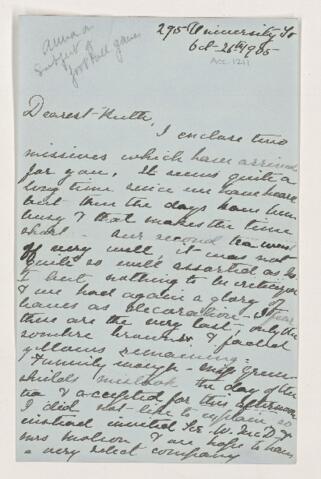 Anna on
Subject of
foot ball games
295 University St
Oct. 26th 1905
Acc. 1211
Dearest Ruth,
I enclose two
missives which have arrived
for you. It seems quite a
long time since we have heard
but then the days have been
busy & that makes the time
short - Our second tea went
off very well it was not
quite so well assorted as No
I but nothing to be criticized
& we had again a glory of
leaves as decoration. I fear
these are the very last - only the
sombre browns & faded
yellows remaining =
Funnily enough - Miss Green-
shields mistook the day of the
tea & accepted for this afternoon
I did not like to explain so
instead invited
Mrs Molson & we hope to have
a very select company